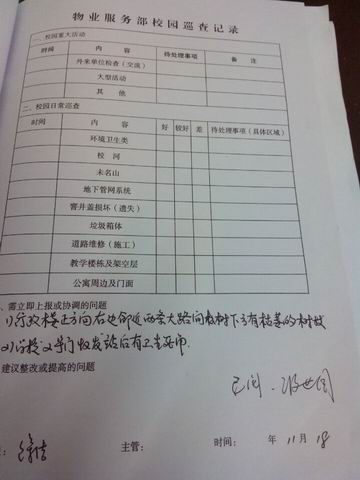 物业服务部校园巡查记录
一、校园重大活动
时间 内 容 待处理事项 备 注
外来单位检查（交流）
大型活动
其 他
二、校园日常巡查
时间 内 容 好 较好 差 待处理事项（具体区域）
环境卫生类
校 河
未名山
地下管网系统
窨井盖损坏（遗失）
垃圾箱体
道路维修（施工）
教学楼栋及架空层
公寓周边及门面
、需立即上报或协调的问题
1)行政楼正方向右边邻近两条大路间
2)学校
建议整改或提高的问题
已阅
主管： 时间： 年 11月 18